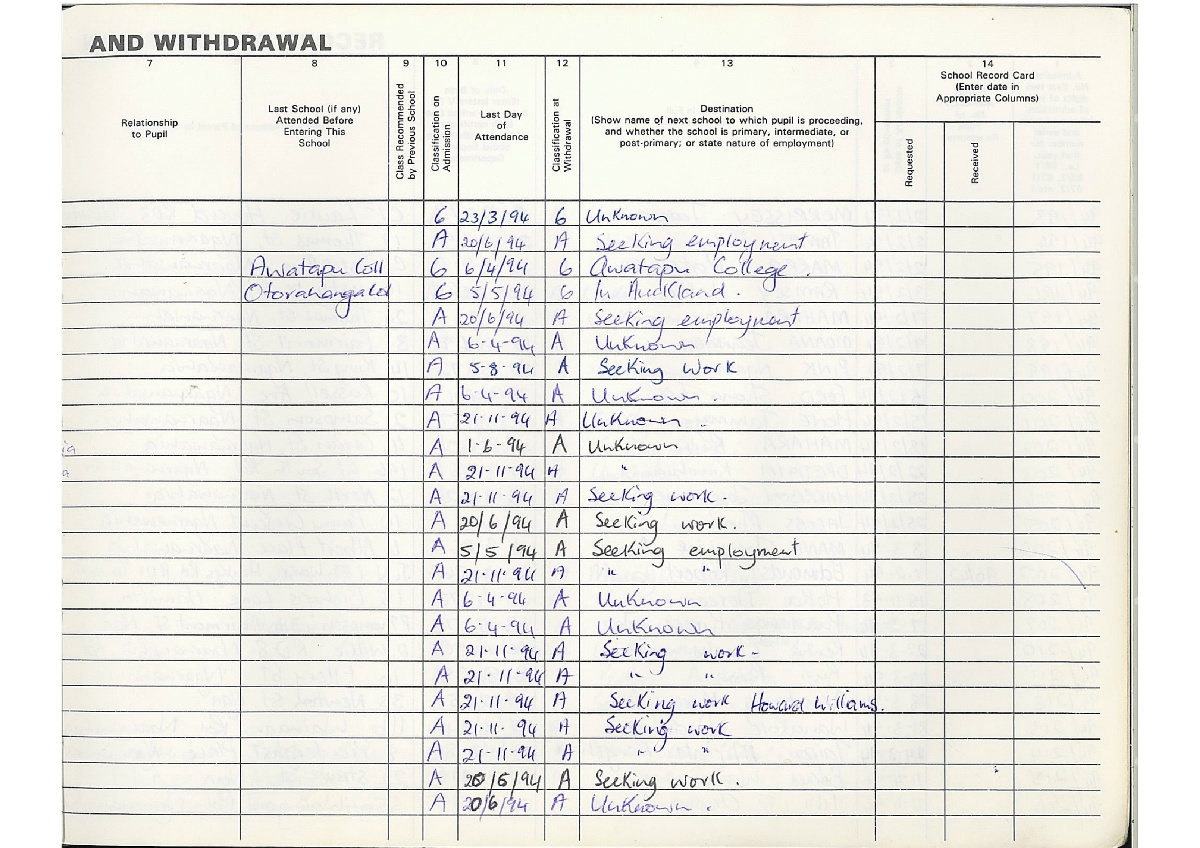 AND WITHDRAWAL
7 8 9 10 11 12 13 14
Relationship to Pupil
Last School (if any) Attended Before Entering This School
Class Recommended by Previous School
Classification on Admission
Last Day of Attendance
Classification at Withdrawal
Destination
(Show name of next school to which pupil is proceeding, and whether the school is primary, intermediate, or post-primary; or state nature of employment)
School Record Card
(Enter date in Appropriate Columns)
Requested
Received
6 23/3/94 6 Unknown
A 20/6/94 A Seeking employment
Awatapu Coll 6 6/4/94 6 Awatapu College.
6 5/5/94 6 In Auckland.
A 20/6/94 A Seeking employment
A 6-4-94 A Unknown
A 5-8-94 A Seeking work
A 6-4-94 A Unknown.
A 21-11-94 A Unknown.
A 1-6-94 A Unknown
A 21-11-94 A "
A 21-11-94 A Seeking work.
A 20/6/94 A Seeking work.
A 5/5/94 A Seeking employment
A 21-11-94 A " "
A 6-4-94 A Unknown
A 6-4-94 A Unknown
A 21-11-94 A Seeking work-
A 21-11-94 A " "
A 21-11-94 A Seeking work Howard Williams.
A 21-11-94 A Seeking work
A 21-11-94 A " "
A 20/6/94 A Seeking work.
A 20/6/94 A Unknown.